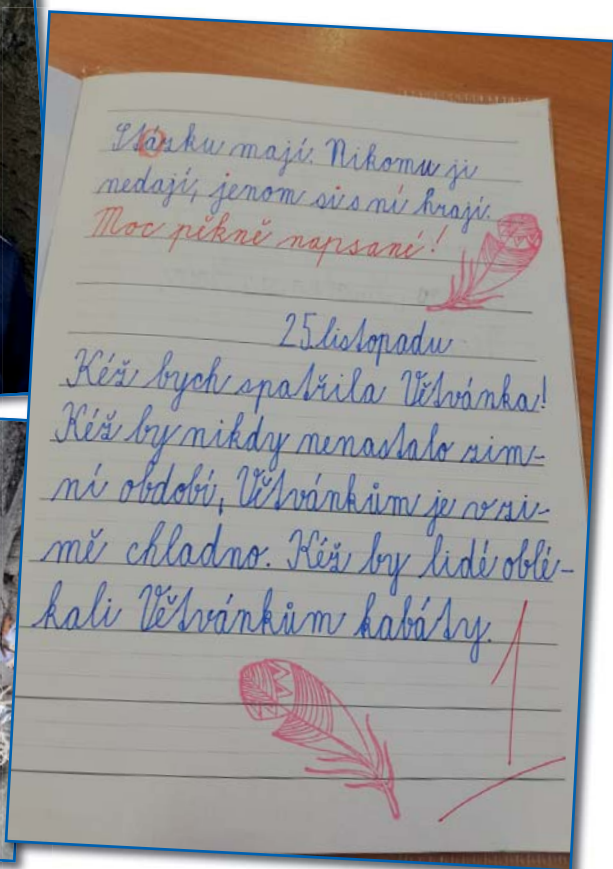 Slásku mají. Nikomu ji
nedají, jenom si s ní hrají.
Moc pěkně napsané!
25. listopadu
Kéž bych spatřila Větvánka!
Kéž by nikdy nenastalo zim-
ní období, Větvánkům je v zi-
mě chladno. Kéž by lidé oblé-
kali Větvánkům kabáty.
1